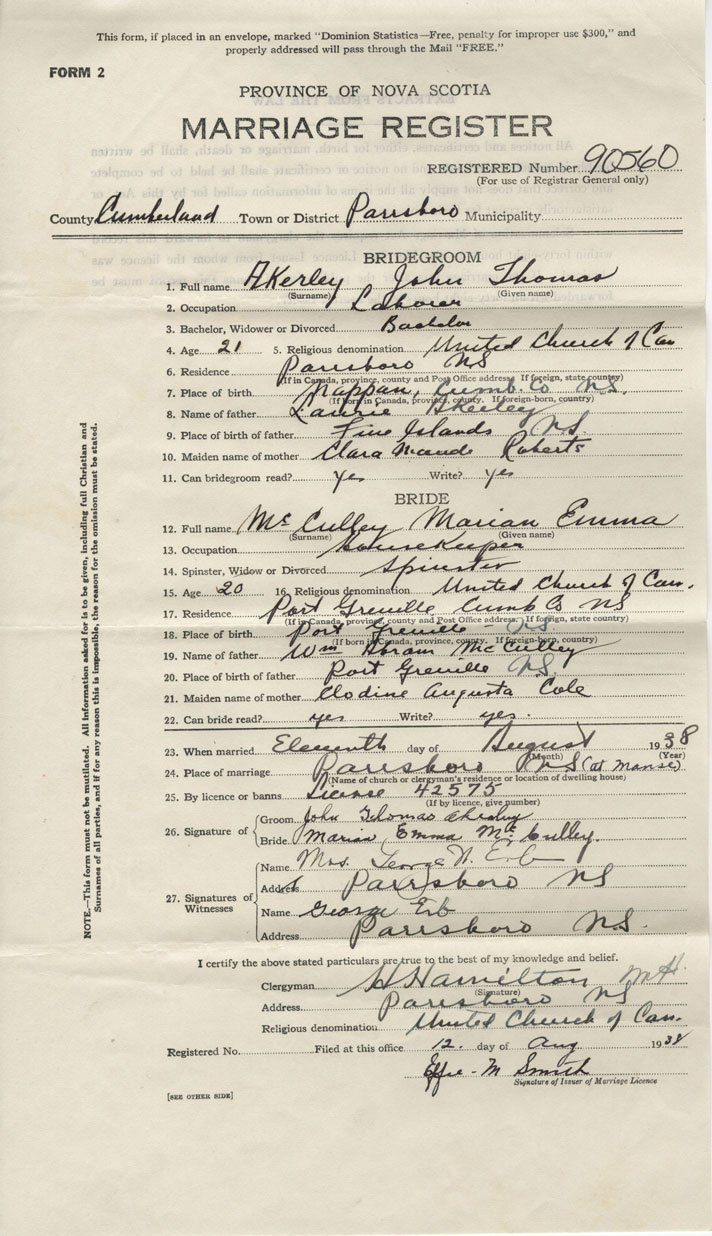 This form, if placed in an envelope, marked "Dominion Statistics—Free, penalty for improper use $300," and
properly addressed will pass through the Mail "FREE."
FORM 2
PROVINCE OF NOVA SCOTIA
MARRIAGE REGISTER
REGISTERED Number 90560
(For use of Registrar General only)
County Cumberland Town or District Parrsboro Municipality
BRIDEGROOM
1. Full name Akerley John Thomas
(Surname) (Given name)
2. Occupation Laborer
3. Bachelor, Widower or Divorced Bachelor
4. Age 21 5. Religious denomination United Church of Can
6. Residence Parrsboro NS
(If in Canada, province, county and Post Office address. If foreign, state country)
7. Place of birth Nappan, Cumb. Co N.S.
(If born in Canada, province, county. If foreign-born, country)
8. Name of father Laurie Akerley
9. Place of birth of father Five Islands N.S.
10. Maiden name of mother Clara Maude Roberts
11. Can bridegroom read? yes Write? yes
BRIDE
12. Full name McCulley Marian Emma
(Surname) (Given name)
13. Occupation Housekeeper
14. Spinster, Widow or Divorced Spinster
15. Age 20 16. Religious denomination United Church of Can.
17. Residence Port Greville Cumb Co NS
(If in Canada, province, county and Post Office address. If foreign, state country)
18. Place of birth Port Greville - N.S.
(If born in Canada, province, county. If foreign-born, country)
19. Name of father Wm Hiram McCulley
20. Place of birth of father Port Greville N.S.
21. Maiden name of mother Clodine Augusta Cole
22. Can bride read? yes Write? yes.
23. When married Eleventh day of August 1938
(Month) (Year)
24. Place of marriage Parrsboro NS (at Manse)
(Name of church or clergyman's residence or location of dwelling house)
25. By licence or banns License 42575
(If by licence, give number)
26. Signature of
Groom John Thomas Akerley
Bride Marian Emma McCulley.
27. Signatures of Witnesses
Name Mrs. George W. Erb
Address Parrsboro NS
Name George Erb
Address Parrsboro N.S.
I certify the above stated particulars are true to the best of my knowledge and belief.
Clergyman Hamilton
(Signature)
Address Parrsboro NS
Religious denomination United Church of Can.
Registered No. Filed at this office 12. day of Aug 1938
Effie - M Smith
Signature of Issuer of Marriage Licence
[SEE OTHER SIDE]
NOTE.—This form must not be mutilated. All Information asked for is to be given, including full Christian and
Surnames of all parties, and if for any reason this is impossible, the reason for the omission must be stated.